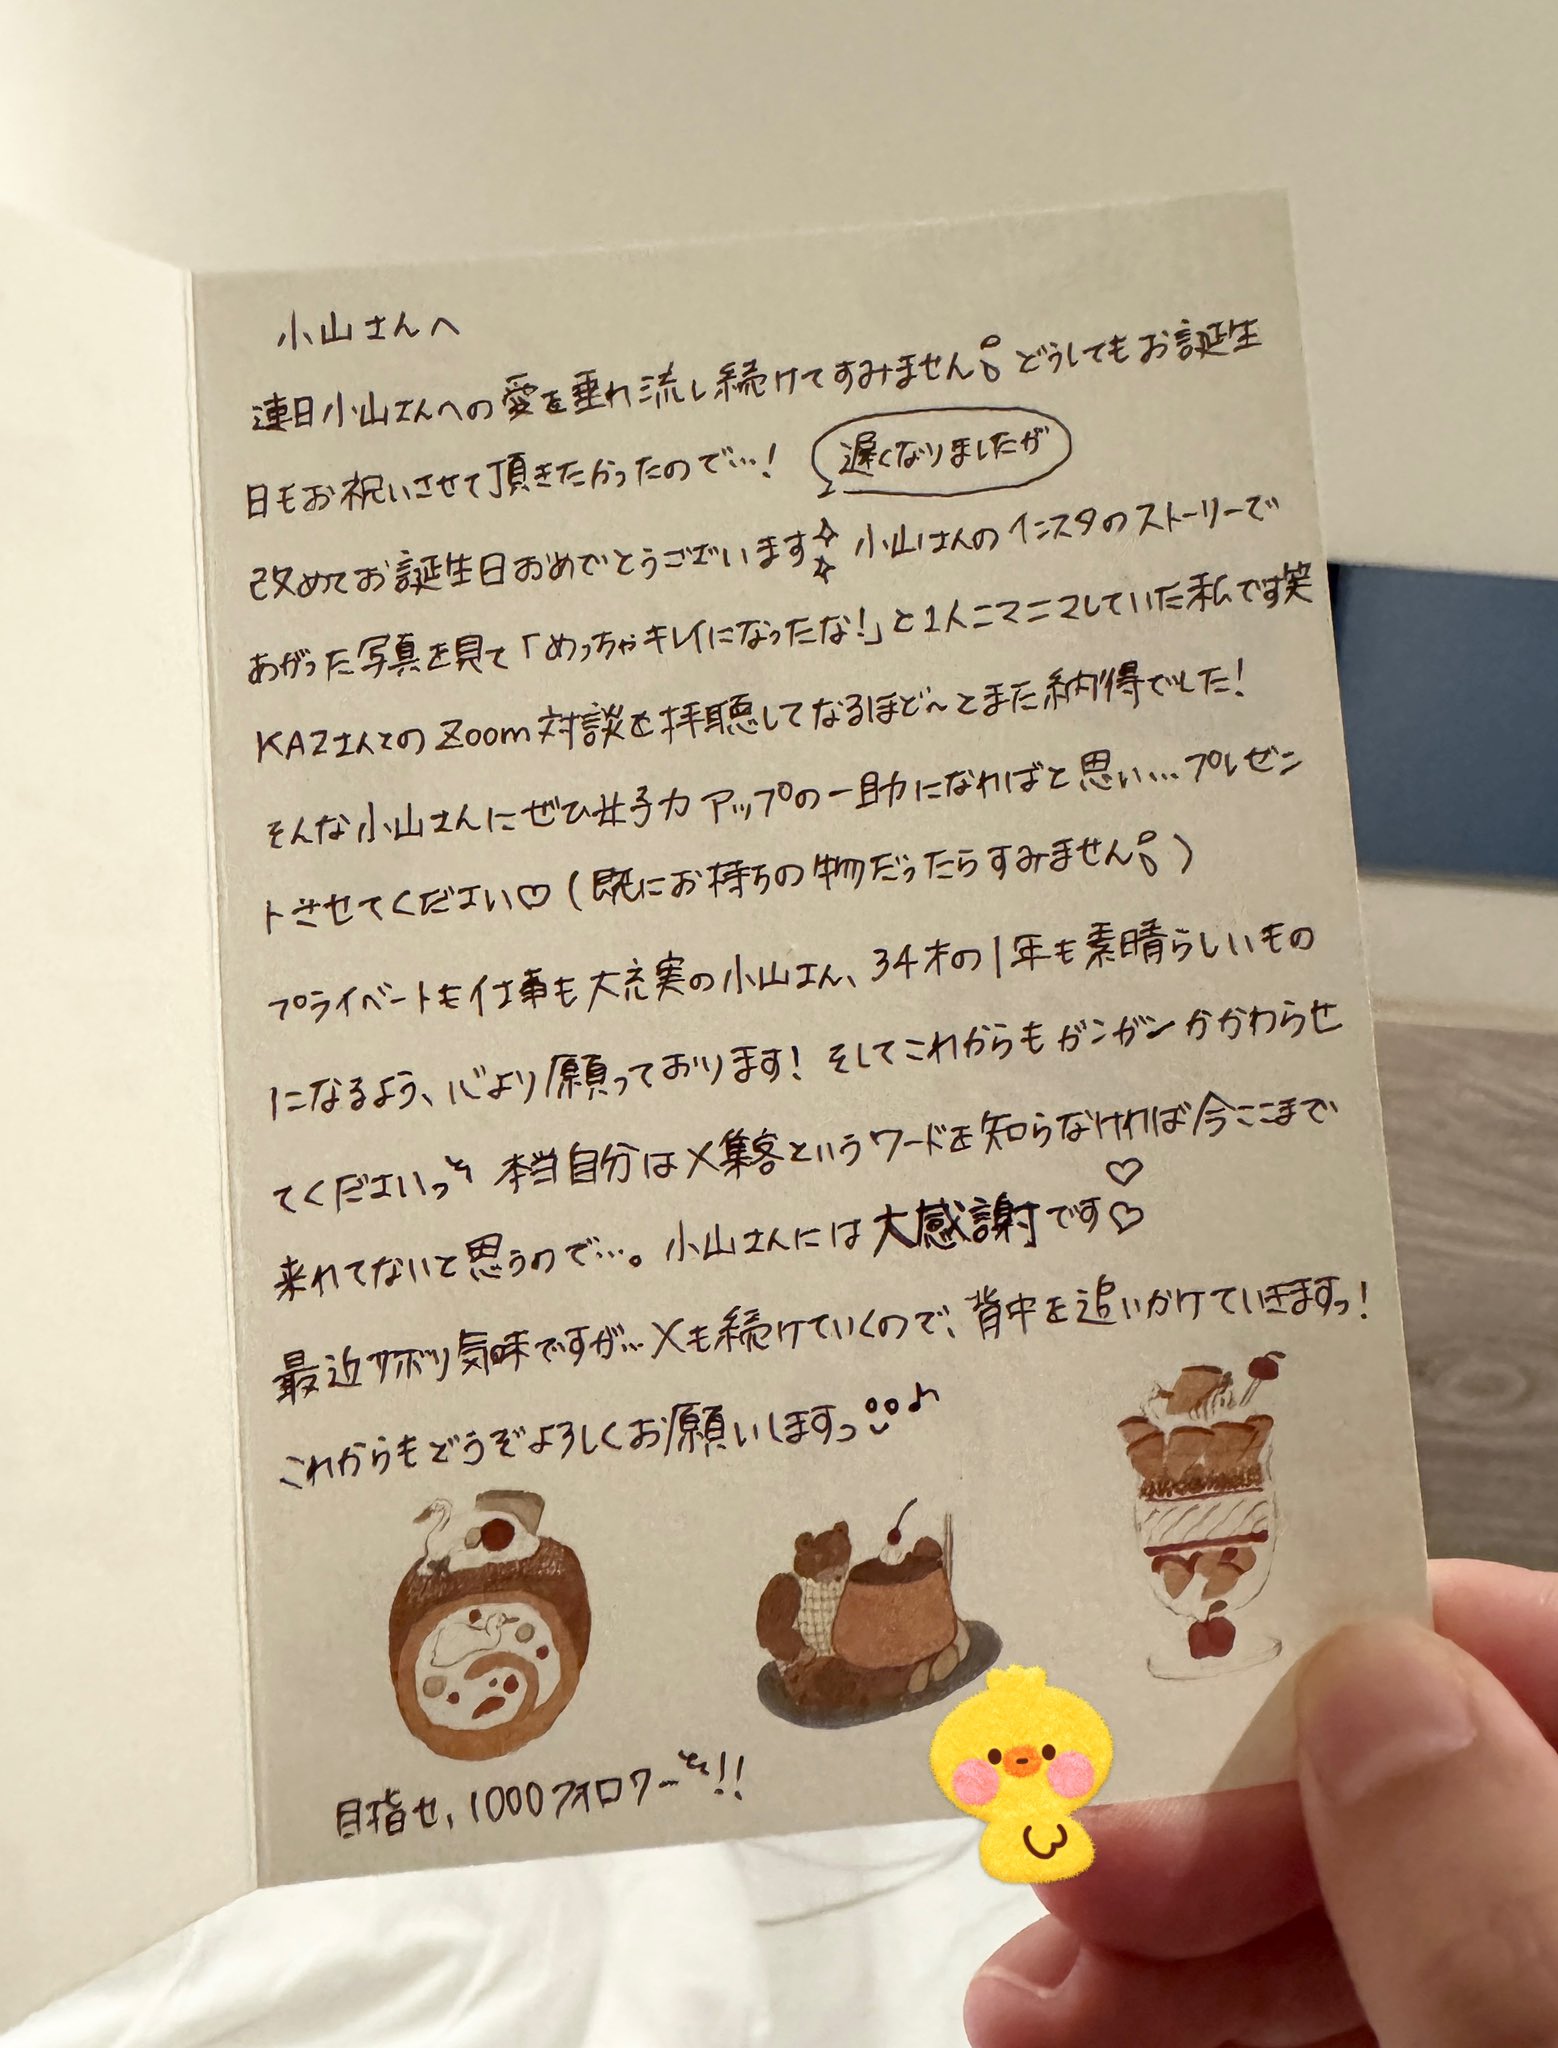 小山さんへ
連日小山さんへの愛を垂れ流し続けてすみません💦どうしてもお誕生
日もお祝いさせて頂きたかったので…!
遅くなりましたが
改めてお誕生日おめでとうございます✨小山さんのインスタのストーリーで
あがった写真を見て「めっちゃキレイになったな!」と1人ニマニマしていた私です笑
KAZさんとのZoom対談を拝聴してなるほど〜とまた納得でした!
そんな小山さんにぜひ女子力アップの一助になればと思い…プレゼン
トさせてください♡(既にお持ちの物だったらすみません💦)
プライベートも仕事も大充実の小山さん、34才の1年も素晴らしいもの
になるよう、心より願っております!そしてこれからもガンガンかかわらせ
てくださいっ 本当自分はX集客というワードを知らなければ今ここまで
来れてないと思うので…。小山さんには大感謝です♡♡
最近サボり気味ですが…Xも続けていくので、背中を追いかけていきますっ!
これからもどうぞよろしくお願いしますっ♪
目指せ、1000フォロワー!!